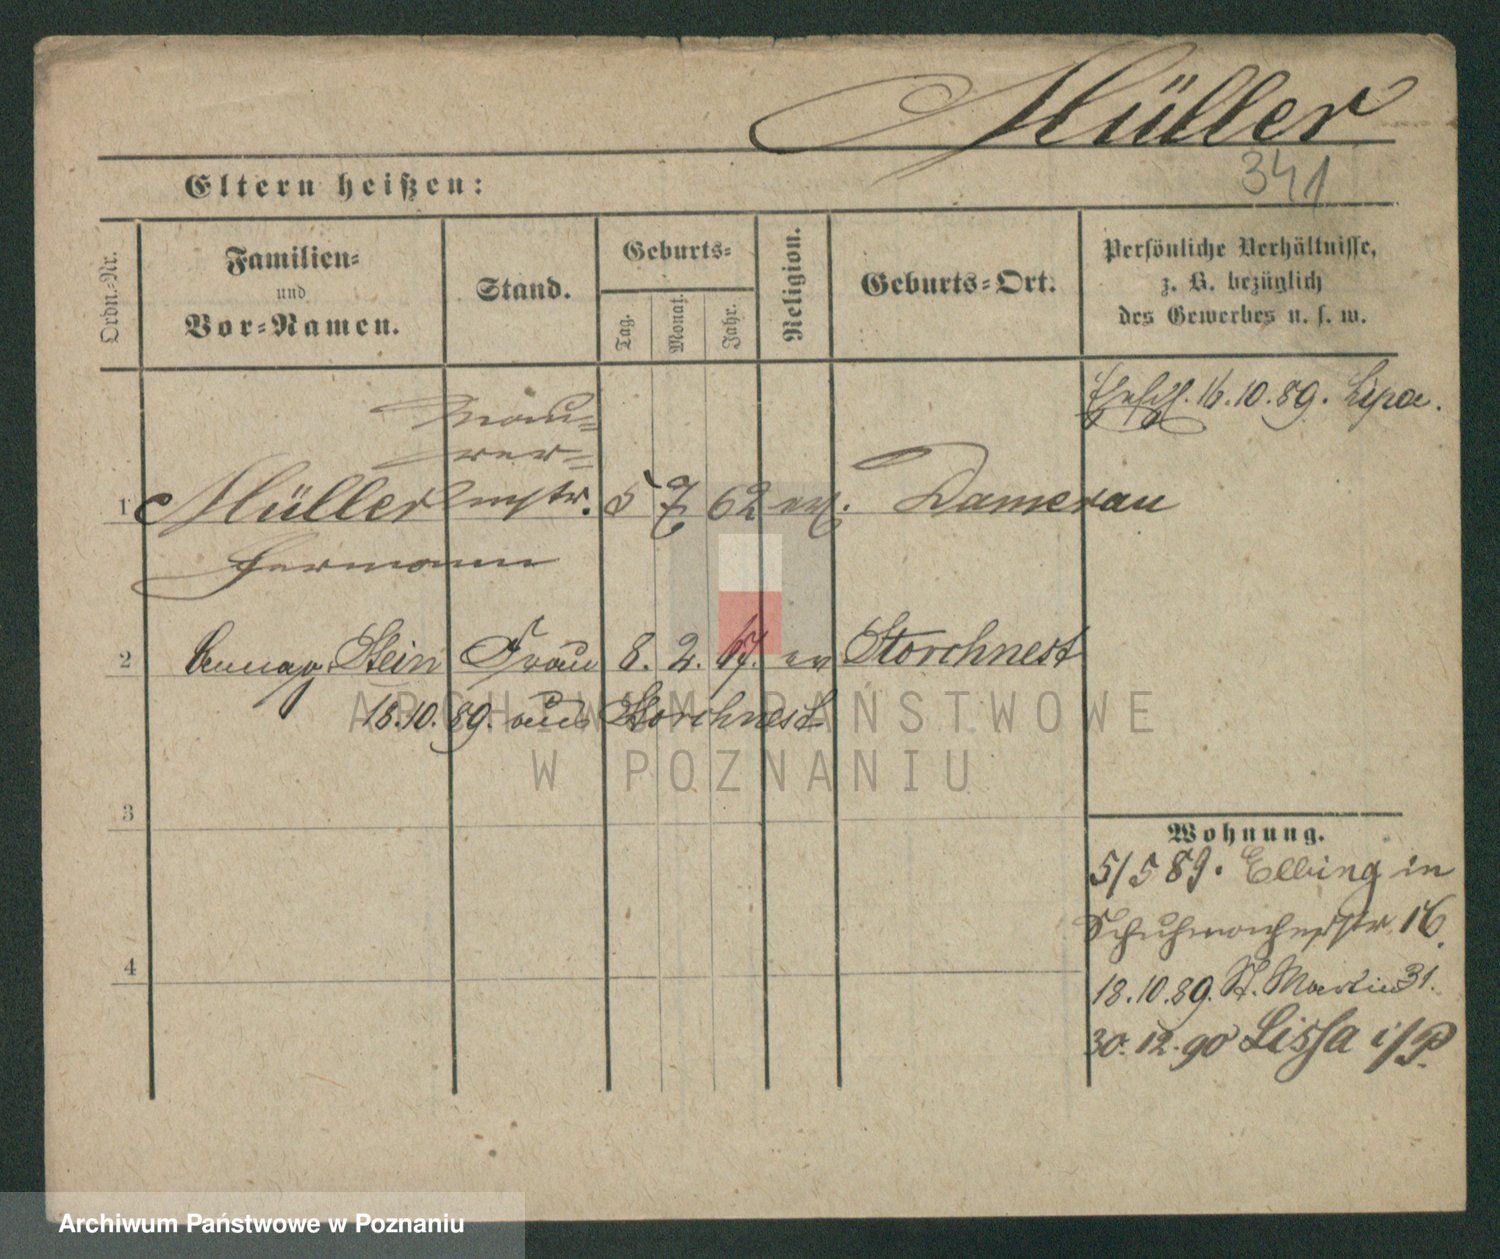 Müller
341
Eltern heißen:
Ordn.-Nr.
Familien-
und
Vor-Namen.
Stand.
Geburts-
Tag.
Monat.
Jahr.
Religion.
Geburts-Ort.
Persönliche Verhältnisse,
z. B. bezüglich
des Gewerbes u. s. w.
Ehesch. 16.10.89. Lipa.
Mau-
rer-
1 Müller mstr. 5 7 62 ev. Damerau
Hermann
2 Stein Frau 8. 2. 67. ev Storchnest
18.10.89. aus Storchnest
3
4
Wohnung.
5/5 89. Elbing in
Schuhmacherstr. 16.
18.10.89. St. Martin 31.
30.12.90 Lissa i/P.
ARCHIWUM PAŃSTWOWE
W POZNANIU
Archiwum Państwowe w Poznaniu